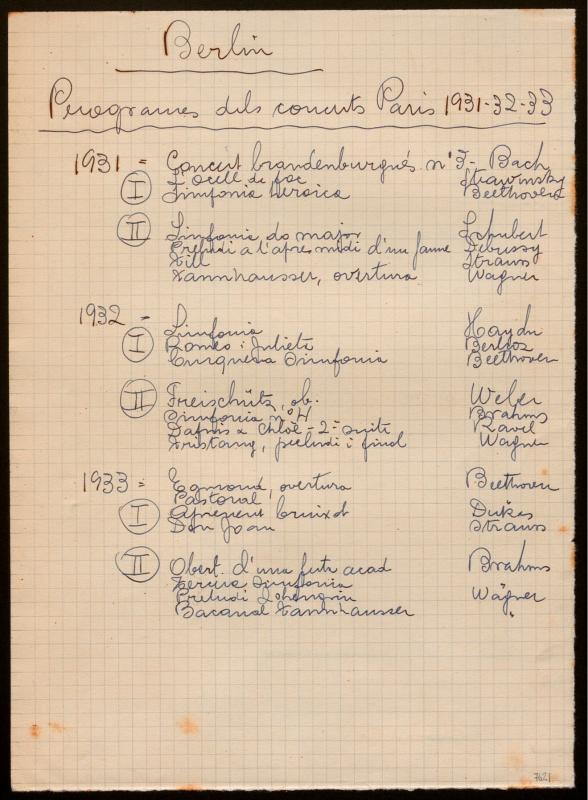 Berlin
Programes dels concerts Paris 1931-32-33
1931 = Concert brandenburgués nº 3 - Bach
I L'ocell de foc Strawinsky
Simfonia Heroica Beethoven
II Simfonia do major Schubert
Preludi a l'apres midi d'un faune Debussy
Till Straus
Tannhausser, overtura Wagner
1932 - Simfonia Haydn
I Romeo i Julieta Berlioz
Cinquena Simfonia Beethoven
II Freischütz, ob. Weber
Simfonia nº 4 Brahms
Dafnis a Chloë - 2ª suite Ravel
Tristany, preludi i final Wagner
1933 = Egmond, overtura Beethoven
Pastoral
I Aprenent bruixot Dukes
Don Joan Straus
II Obert. d'una festa acad Brahms
Tercera Simfonia
Preludi Lohengrin Wagner
Bacanal Tannhausser "
7621